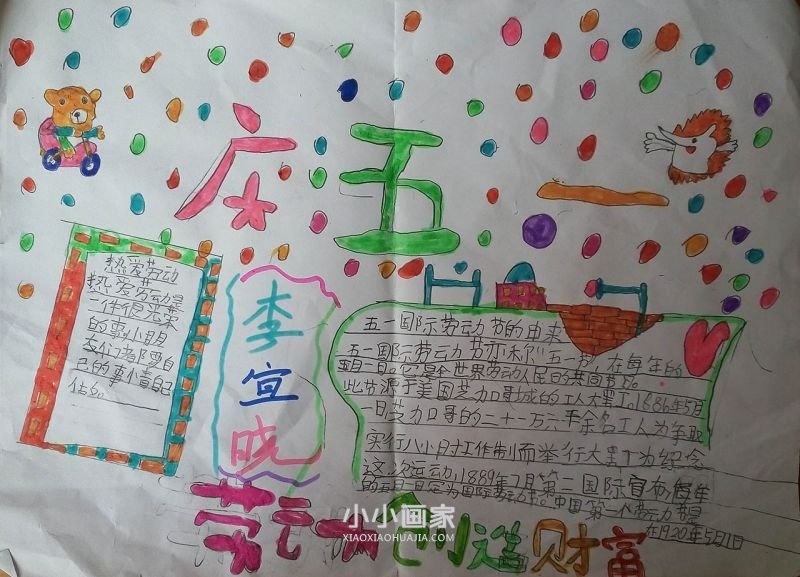 庆五一
热爱劳动
热爱劳动是
一件很光荣
的事小朋
友们都要自
己的事情自己
做
李
宣
晓
五一国际劳动节的由来
五一国际劳动节亦称"五一节"在每年的
五月一日。它是全世界劳动人民的共同节日。
此节源于美国芝加哥城的工人大罢工。1886年5月
一日芝加哥的二十一万六千余名工人为争取
实行八小时工作制而举行大罢工为纪念
这次运动1889年7月第二国际宣布每年
的五月一日定为国际劳动节。中国第一个劳动节是
在1920年5月1日
劳动创造财富
小小画家
XIAOXIAOHUAJIA.COM